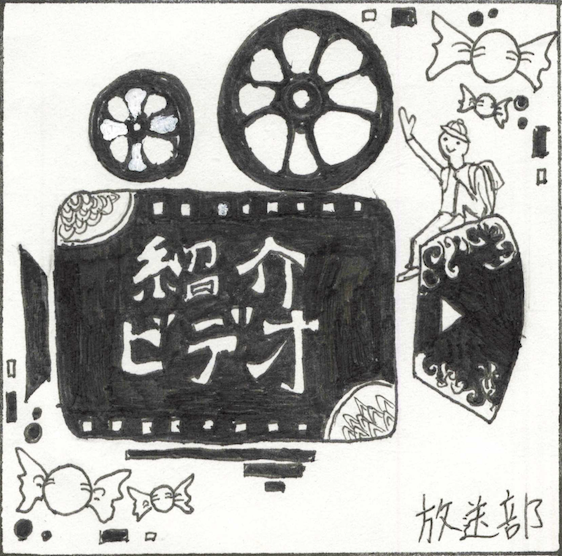 紹介
ビデオ
放送部